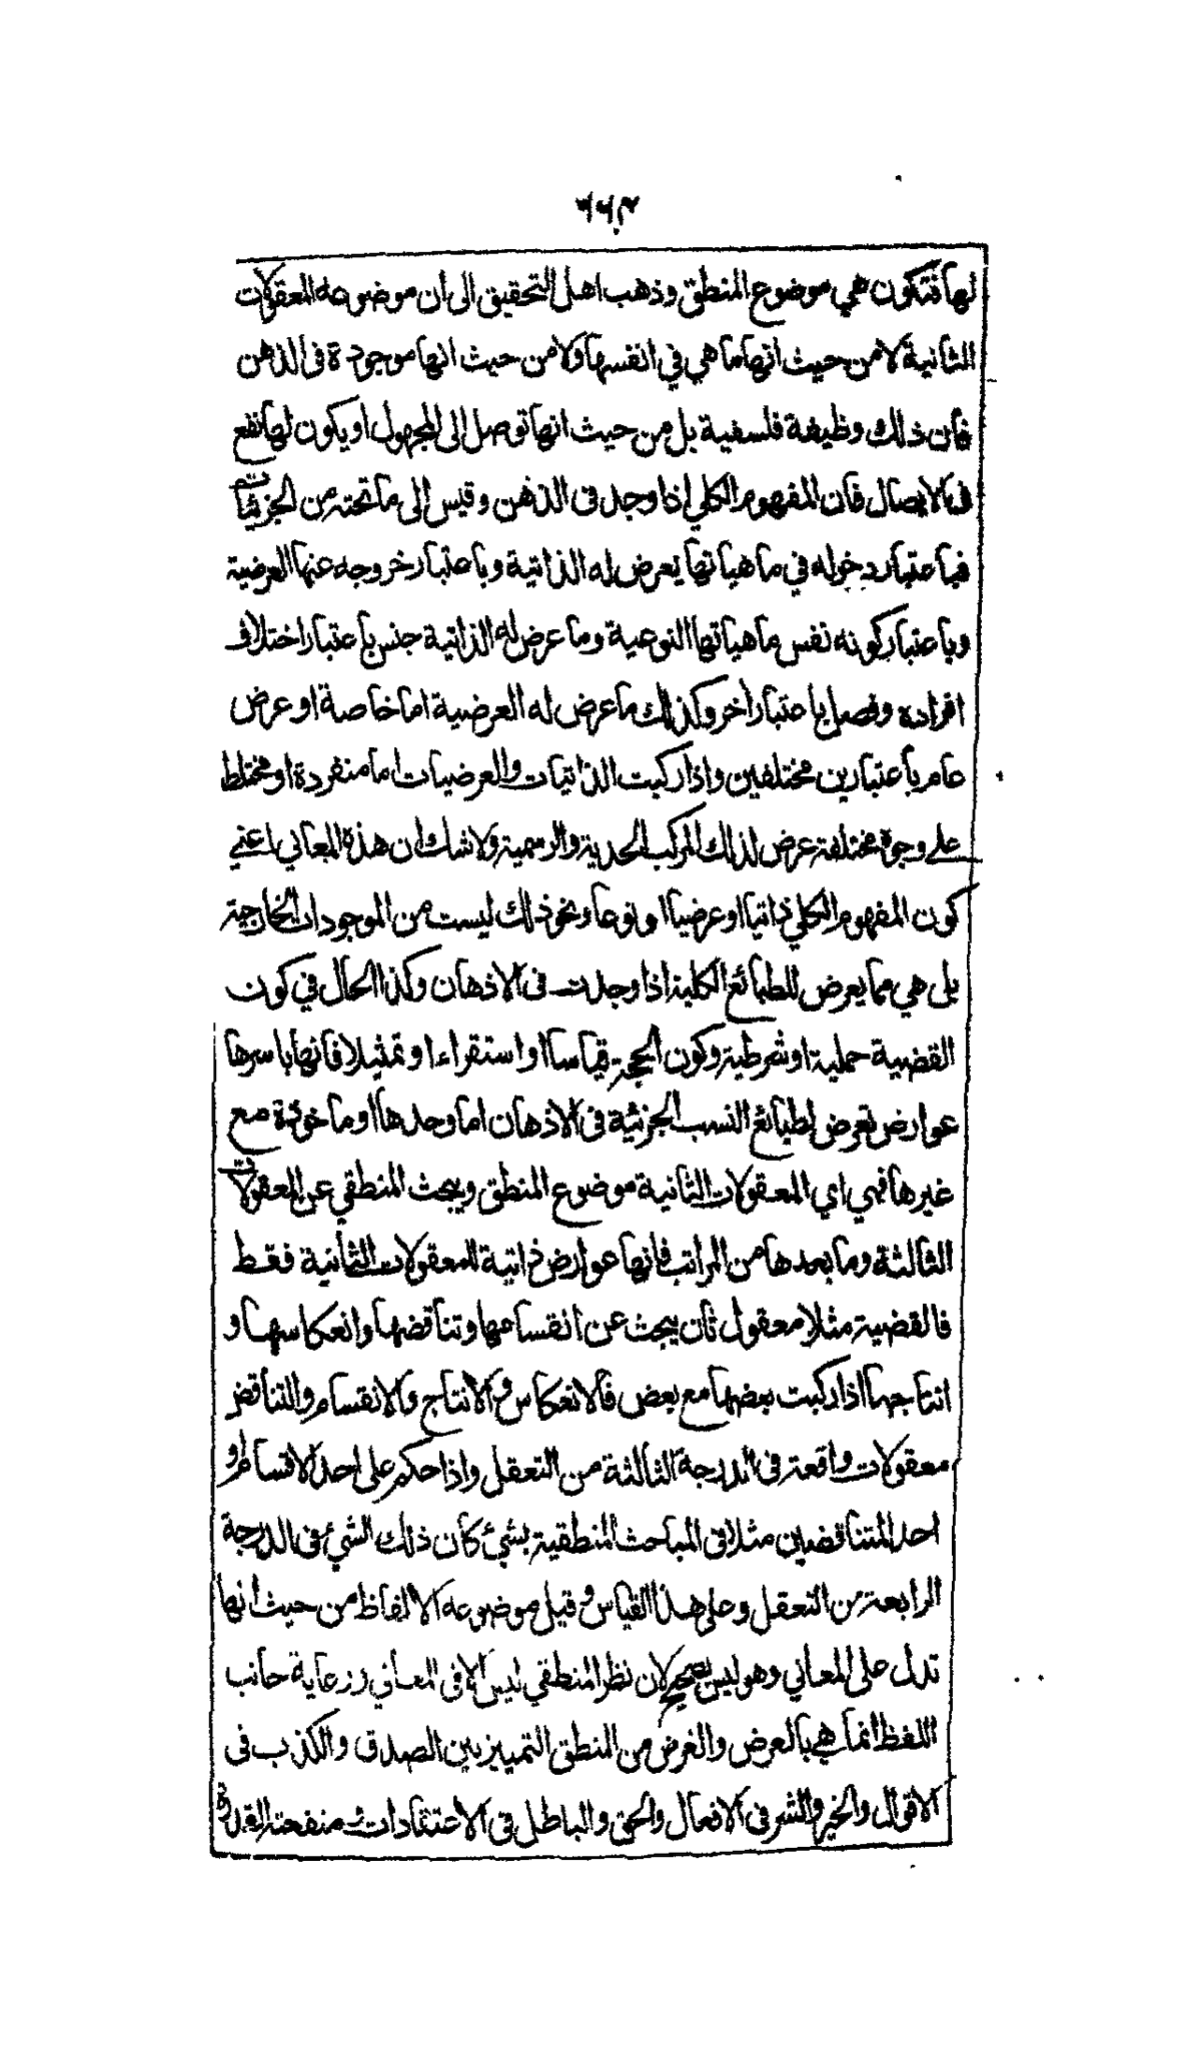 لها فتكون هي موضوع المنطق وذهب اهل التحقيق الى ان موضوعه المعقولات
الثانية لا من حيث انها ما هي في انفسها ولا من حيث انها موجودة فى الذهن
فان ذلك وظيفة فلسفية بل من حيث انها توصل الى المجهول او يكون لها نفع
فى الايصال فان المفهوم الكلي اذا وجد فى الذهن وقيس الى ما تحته من الجزئيات
فباعتبار دخوله في ماهياتها يعرض له الذاتية وباعتبار خروجه عنها العرضية
وباعتبار كونه نفس ماهياتها النوعية وما عرض له الذاتية جنس باعتبار اختلاف
افراده وفصل باعتبار اخر وكذلك ما عرض له العرضية اما خاصة او عرض
عام باعتبارين مختلفين واذا ركبت الذاتيات والعرضيات اما منفردة او مختلطة
على وجوه مختلفة عرض لذلك المركب الحدية والرسمية ولا شك ان هذه المعاني اعني
كون المفهوم الكلي ذاتيا او عرضيا او نوعا ونحو ذلك ليست من الموجودات الخارجية
بل هي مما يعرض للطبائع الكلية اذا وجدت فى الاذهان وكذا الحال في كون
القضية حملية او شرطية وكون الحجة قياسا او استقراء او تمثيلا فانها باسرها
عوارض تعرض لطبائع النسب الجزئية فى الاذهان اما وحدها او ماخوذة مع
غيرها فهي اي المعقولات الثانية موضوع المنطق ويبحث المنطقي عن المعقولات
الثالثة وما بعدها من المراتب فانها عوارض ذاتية للمعقولات الثانية فقط
فالقضية مثلا معقول ثان يبحث عن انقسامها وتناقضها وانعكاسها و
انتاجها اذا ركبت بعضها مع بعض فالانعكاس والانتاج والانقسام والتناقض
معقولات واقعة فى الدرجة الثالثة من التعقل واذا حكم على احد الاقسام او
احد المتناقضين مثلا فى المباحث المنطقية بشئ كان ذلك الشئ فى الدرجة
الرابعة من التعقل وعلى هذا القياس وقيل موضوعه الالفاظ من حيث انها
تدل على المعاني وهو ليس بصحيح لان نظر المنطقي ليس الا فى المعاني ورعاية جانب
اللفظ انما هي بالعرض والغرض من المنطق التمييز بين الصدق والكذب فى
الاقوال والخير والشر فى الافعال والحق والباطل فى الاعتقادات ومنفعته القدرة